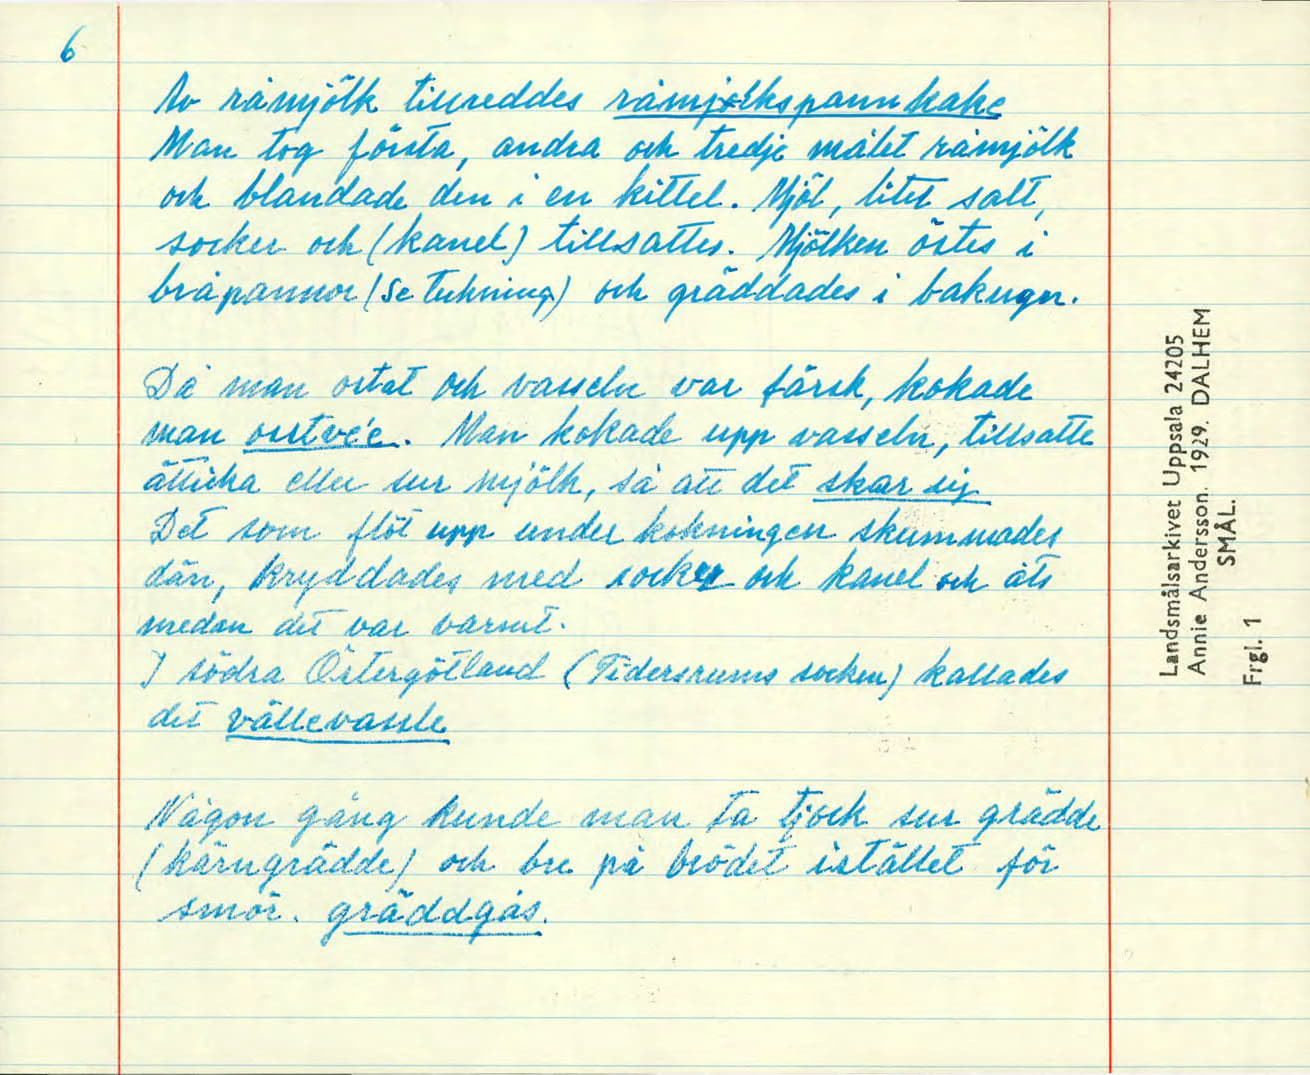 6
Av råmjölk tillreddes råmjölkspannkake
Man tog första, andra och tredje målet råmjölk
och blandade den i en kittel. Mjöl, litet salt,
socker och (kanel) tillsattes. Mjölken östes i
bråpannor (Se Teckning) och gräddades i bakugn.
Då man ostat och vasseln var färsk, kokade
man
Man kokade upp vasseln, tillsatte
ätticka eller sur mjölk, så att det skar sig
Det som flöt upp under kokningen skummades
dän, kryddades med socker och kanel och åts
medan det var varmt.
I södra Östergötland (Tidersrums socken) kallades
det vällevassle
Någon gång kunde man ta tjock sur grädde
(kärngrädde) och bre på brödet istället för
smör. gräddgås.
Landsmålsarkivet Uppsala 24205
Annie Andersson. 1929. DALHEM
SMÅL.
Frgl. 1